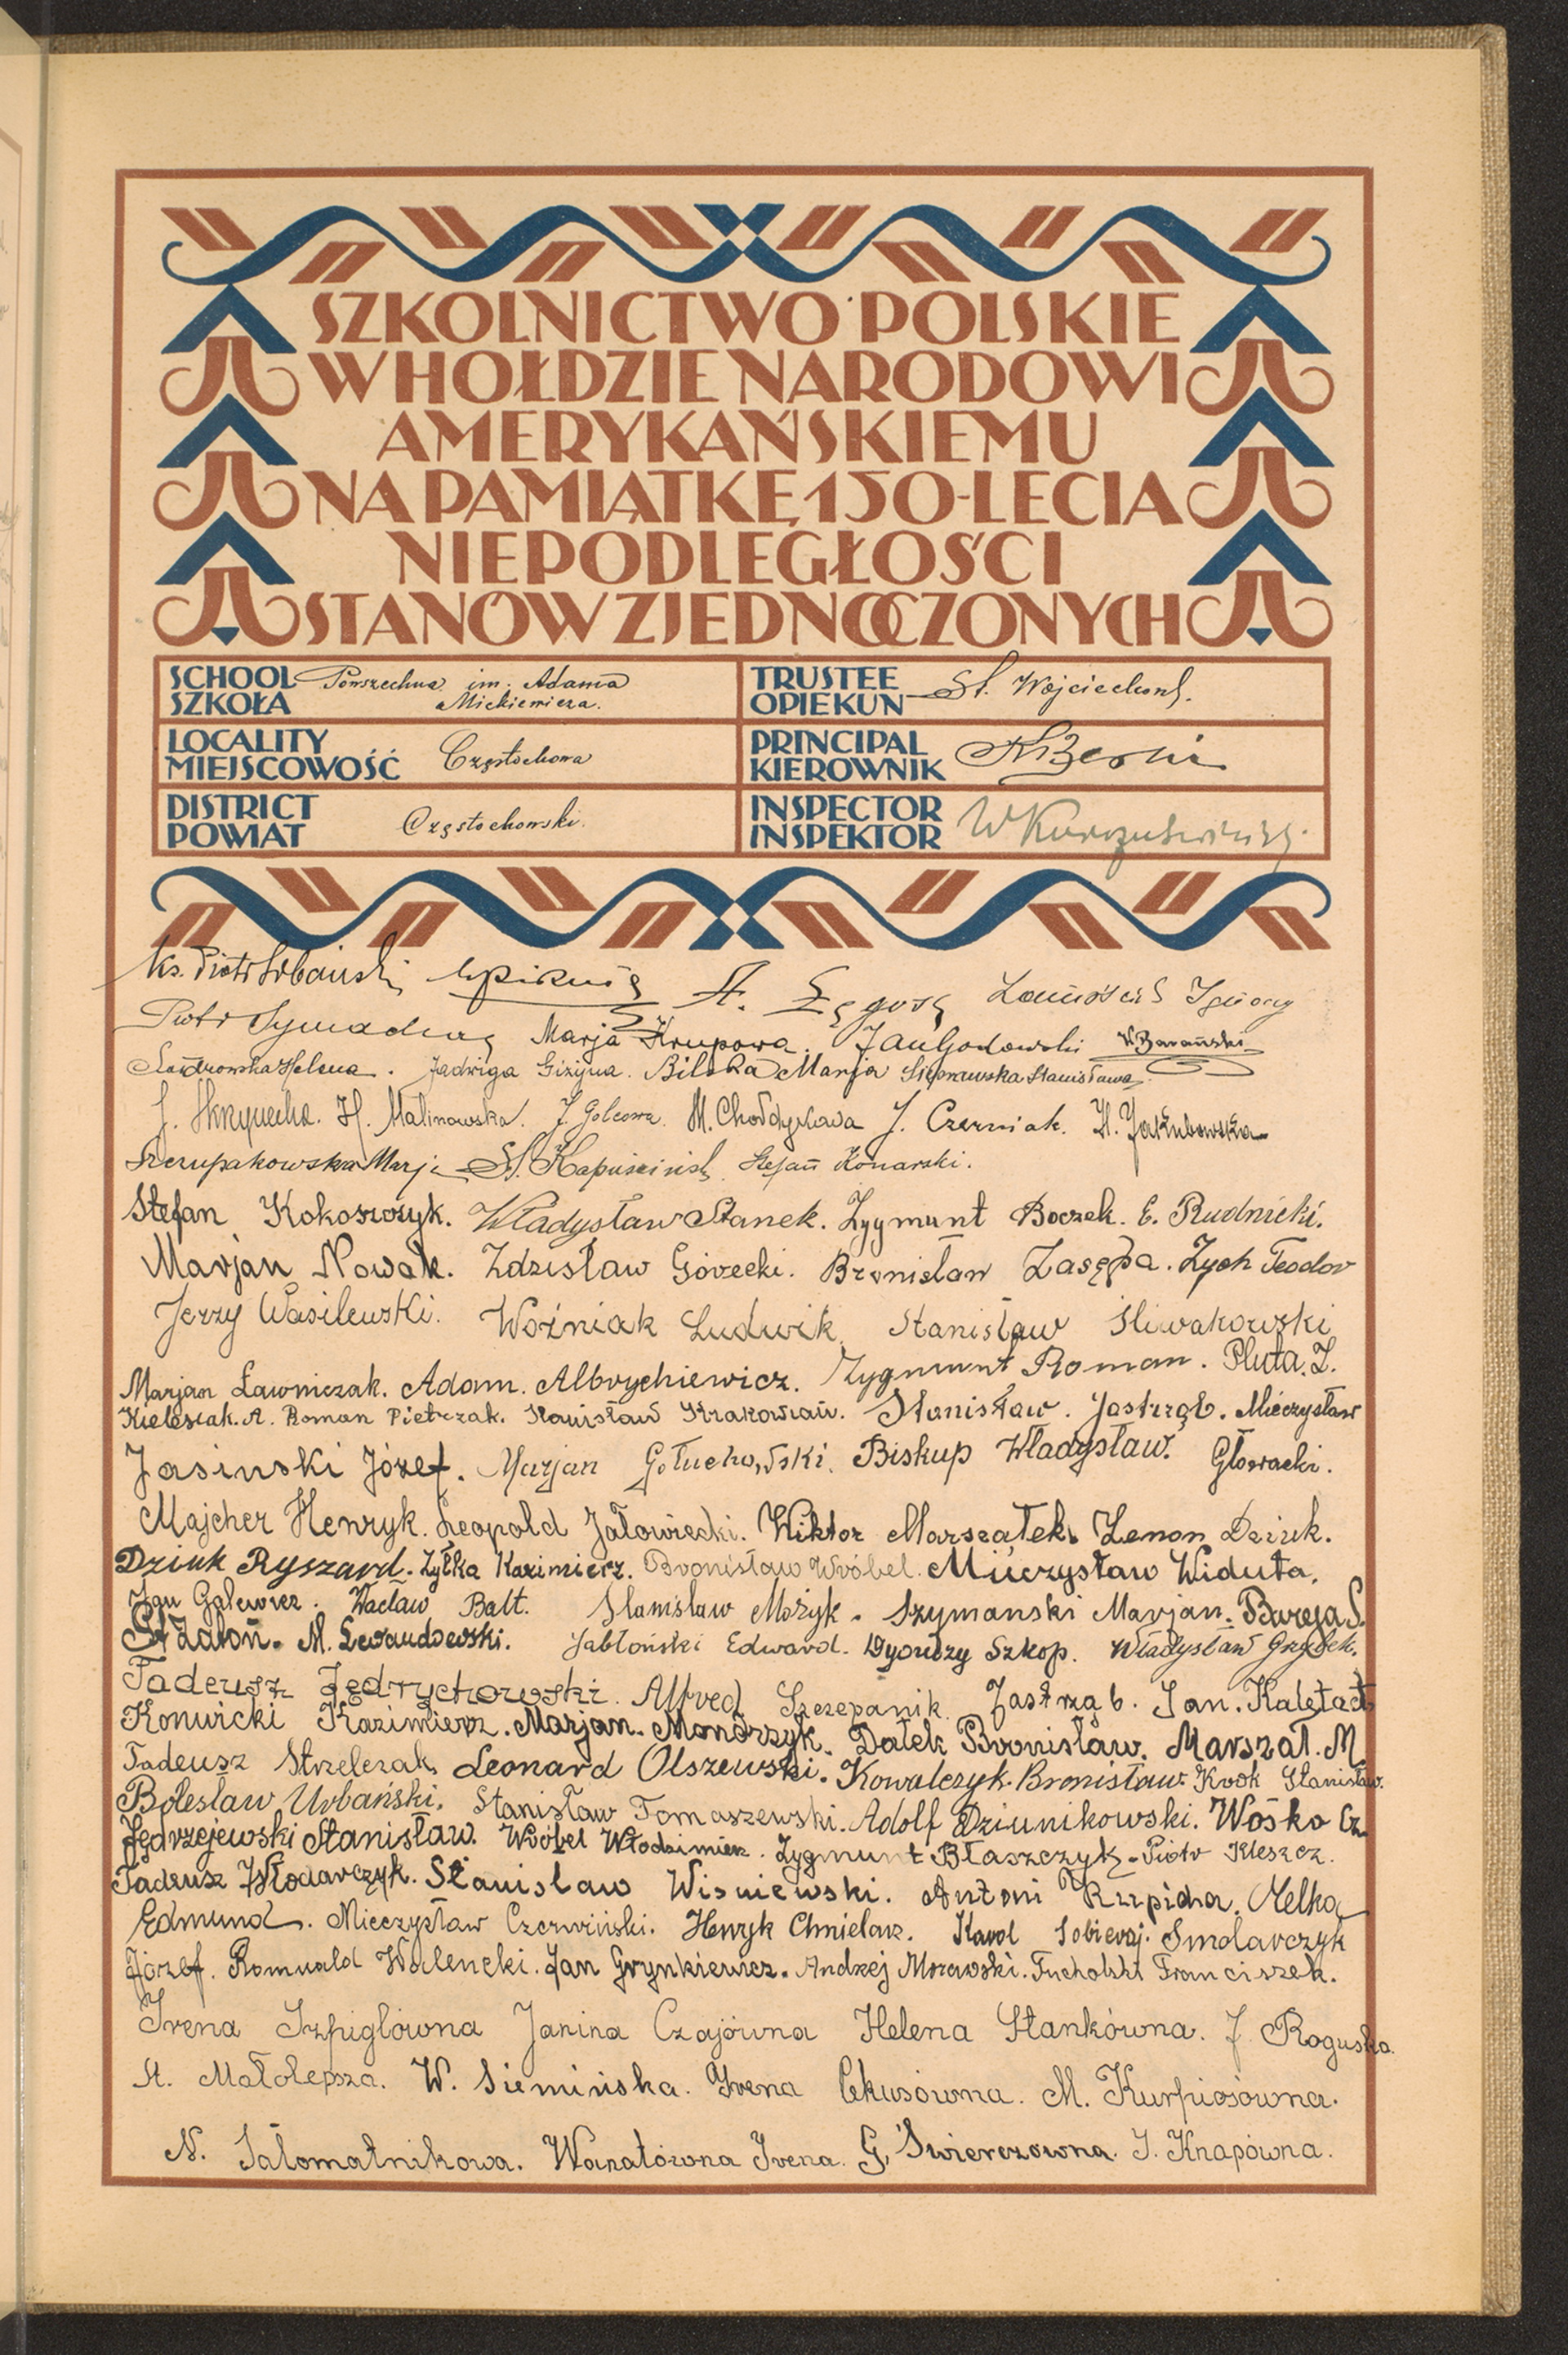 SZKOLNICTWO POLSKIE
W HOŁDZIE NARODOWI
AMERYKAŃSKIEMU
NA PAMIĄTKĘ 150-LECIA
NIEPODLEGŁOŚCI
STANÓW ZJEDNOCZONYCH
SCHOOL SZKOŁA Powszechna im. Adama Mickiewicza.
TRUSTEE OPIEKUN St. Wojciechowski.
LOCALITY MIEJSCOWOŚĆ Częstochowa
PRINCIPAL KIEROWNIK
DISTRICT POWIAT Częstochowski.
INSPECTOR INSPEKTOR
Ks. Piotr A.
Piotr Marja Krupowa. Jan Godowski W. Barański
Helena. Jadwiga Giżyna. Bilska Marja Stanisława
J. Skrzynecka. H. Malinowska. J. Golcowa. M. Chołdykowa J. Czerniak. H. Jakubowska
Szczupakowska Marja St. Kapuściński Stefan Konarski.
Stefan Kokoszczyk. Władysław Stanek. Zygmunt Boczek. E. Rudnicki.
Marjan Nowak. Zdzisław Górecki. Bronisław Zasępa. Zych Teodor
Jerzy Wasilewski. Woźniak Ludwik. Stanisław Śliwakowski
Marjan Ławniczak. Adam. Albrychiewicz. Zygmunt Roman. Pluta. Z.
Kielesiak. A. Roman Pietrzak. Stanisław Krakowian. Stanisław. Jastrząb. Mieczysław
Jasinski Józef. Marjan Gołuchowski. Biskup Władysław. Głowacki.
Majcher Henryk. Leopold Jałowiecki. Wiktor Marszałek. Zenon Dziuk.
Dziuk Ryszard. Żyłka Kazimierz. Bronisław Wróbel. Mieczysław Widuta.
Jan Galewicz. Wacław Balt. Stanisław Możyk. Szymanski Marjan. Bareja S.
St Załoń. M. Lewandowski. Jabłoński Edward. Dyonizy Szkop. Władysław Grzybek.
Tadeusz Jędrychowski. Alfred Szczepanik. Jastrząb. Jan. Kaleta
Konwicki Kazimierz. Marjan. Monorzyk. Dałek Bronisław. Marszał. M.
Tadeusz Strzelczak. Leonard Olszewski. Kowalczyk. Bronisław. Kvok Stanisław.
Bolesław Urbański. Stanisław Tomaszewski. Adolf Dziunikowski. Wośko Cz.
Jędrzejewski Stanisław. Wróbel Włodzimierz. Zygmunt Błaszczyk. Piotr Kleszcz.
Tadeusz Włodarczyk. Stanisław Wisniewski. Antoni Rzepicha. Melka
Edmund. Mieczysław Czerwiński. Henryk Chmielarz. Karol Sobieraj. Smolarczyk
Józef. Romuald Walencki. Jan Grynkiewicz. Andrzej Morawski. Tucholski Franciszek.
Irena Szpiglówna Janina Czajówna Helena Stankówna. J. Roguska.
A. Małolepsza. W. Siemińska. Irena Cekusówna. M. Kurpiosówna.
N. Sałomatnikowa. Wanatówna Irena. G. Świerczówna. I. Knapówna.